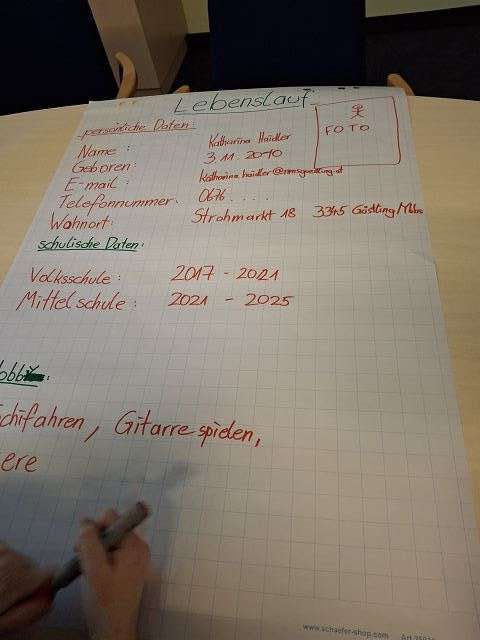 Lebenslauf
persönliche Daten:
FOTO
Name: Katharina Haidler
Geboren: 3.11.2010
E-mail: katharina.haidler@nmsgoestling.at
Telefonnummer: 0676....
Wohnort: Strohmarkt 18 3345 Göstling/Ybbs
schulische Daten:
Volksschule: 2017 - 2021
Mittelschule: 2021 - 2025
chifahren, Gitarre spielen,
ere
www.schaefer-shop.com